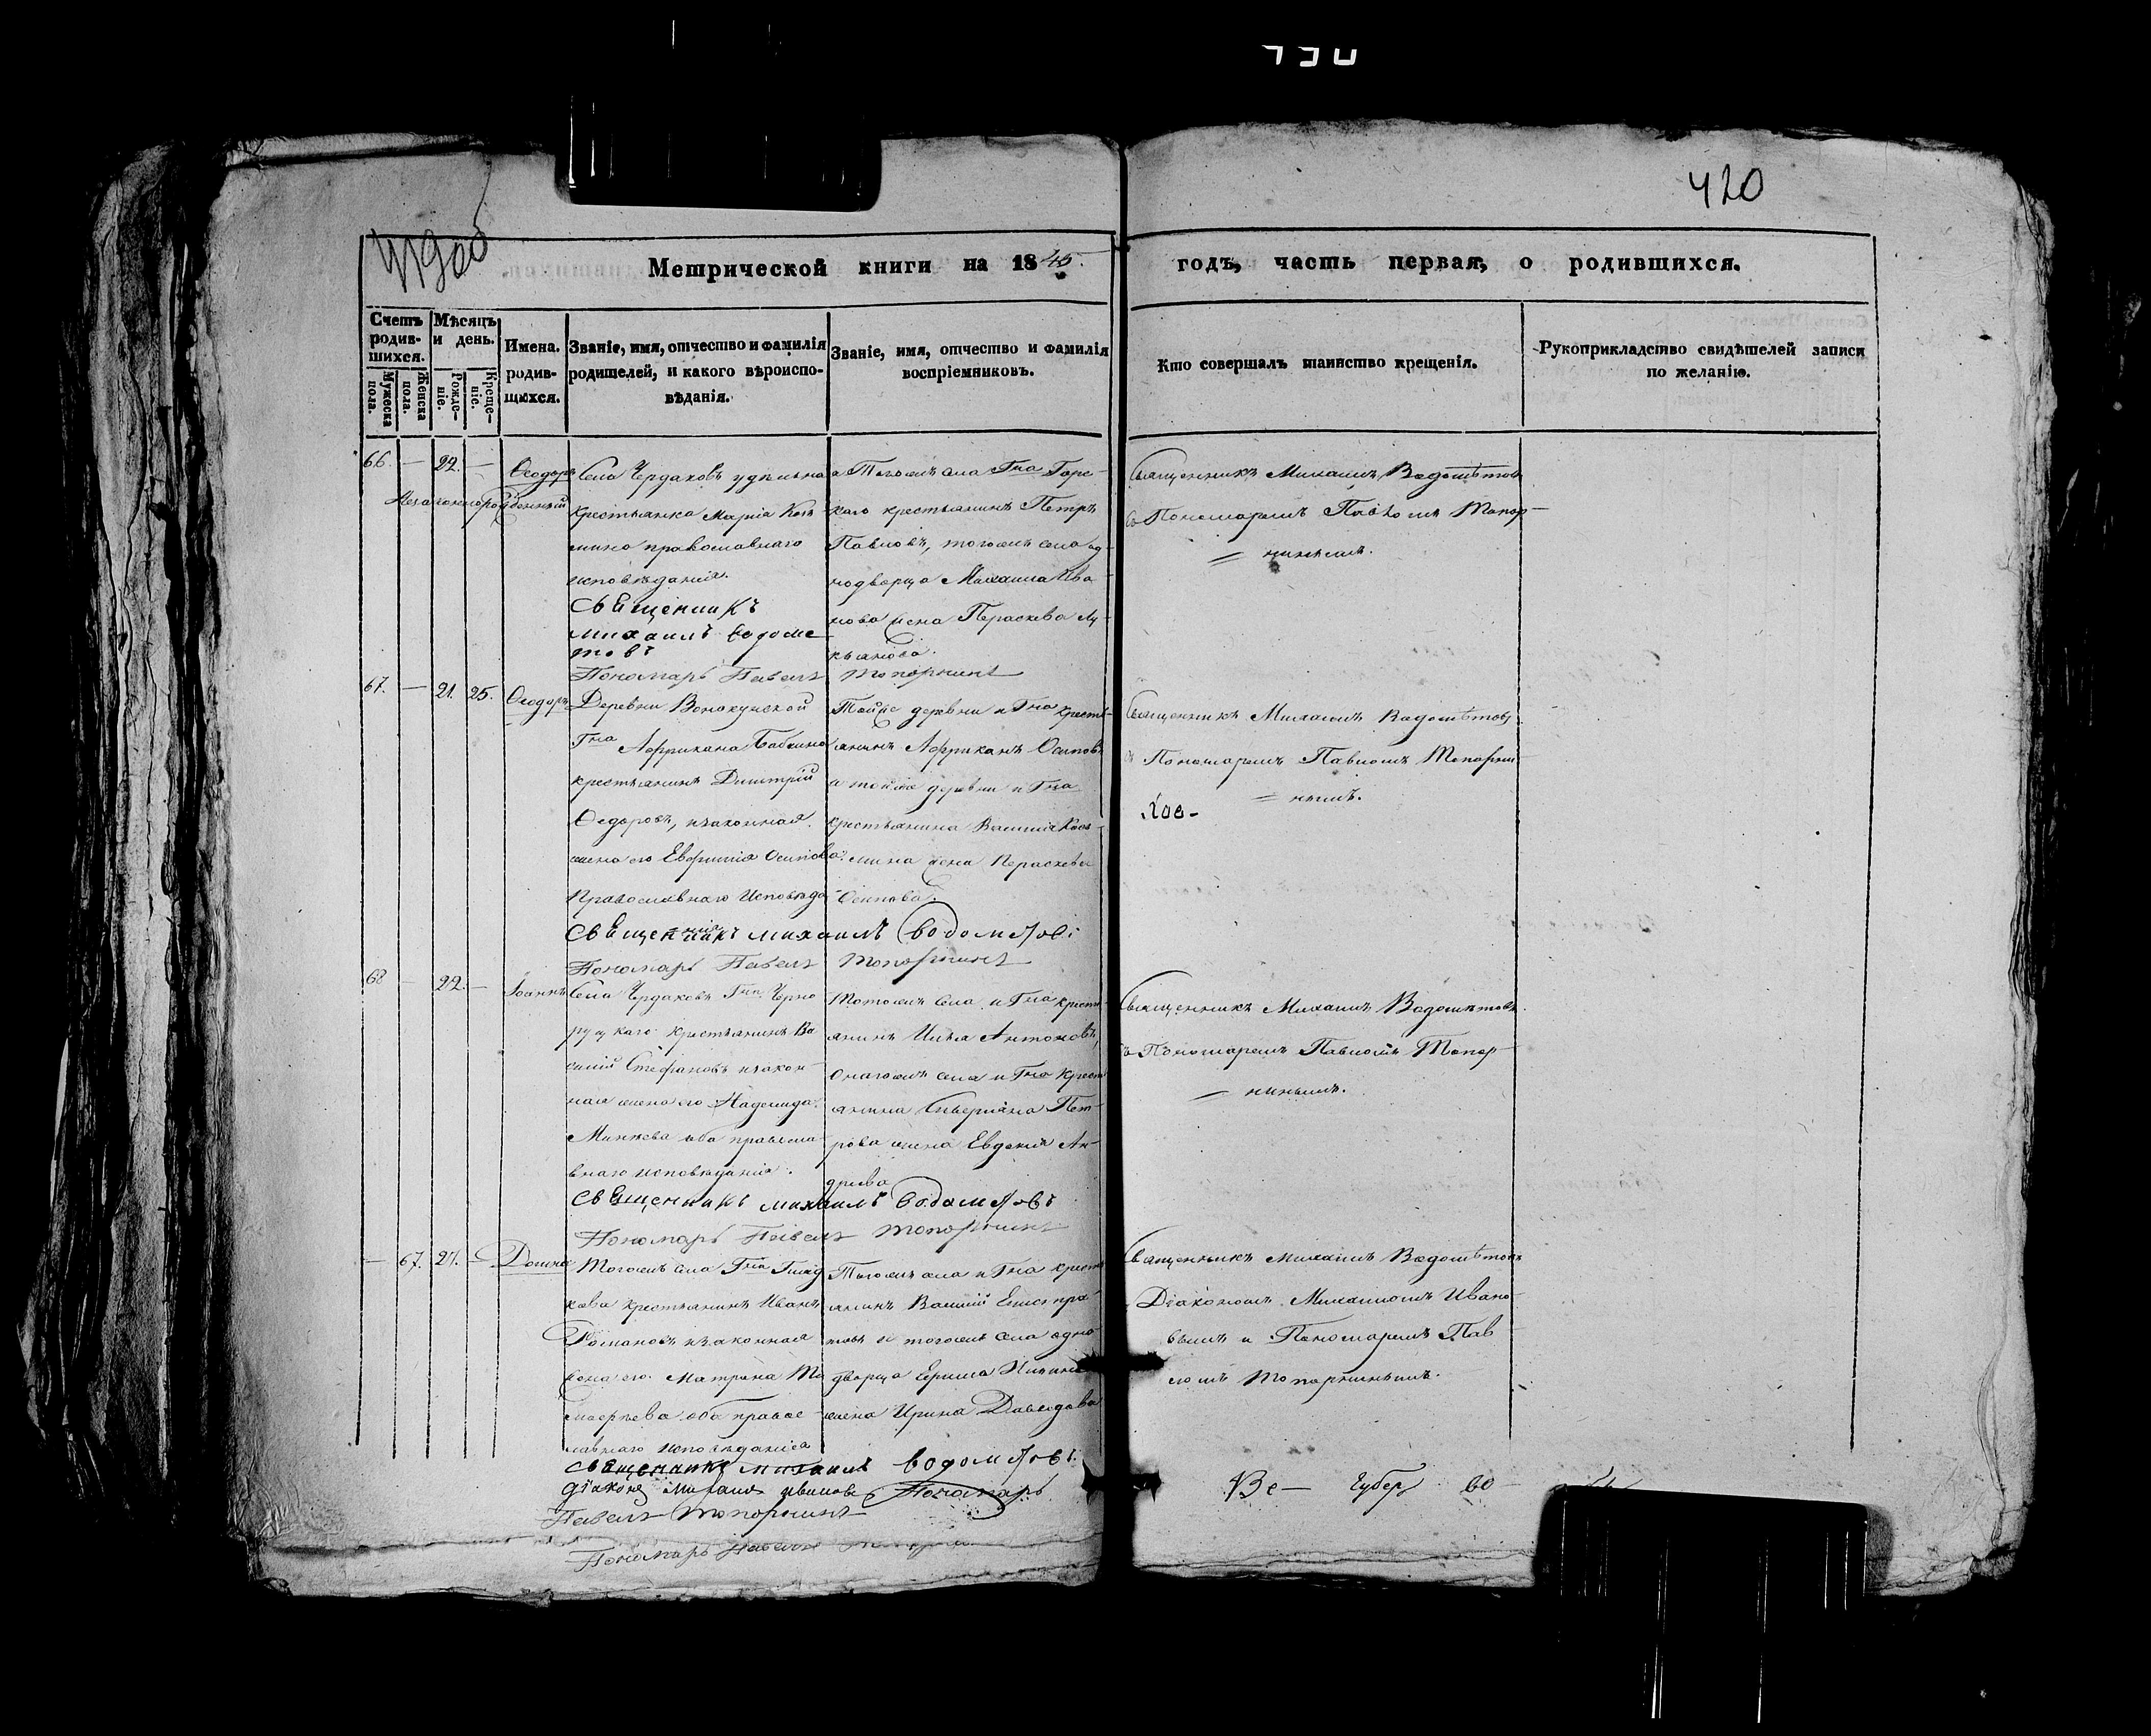 430
420
419 об
Метрической книги на 1845 годъ, часть первая, о родившихся.
Счетъ родившихся.
Мужеска пола.
Женска пола.
Мѣсяцъ и день.
Рожденіе.
Крещеніе.
Имена родившихся.
Званіе, имя, отчество и фамилія родителей, и какого вѣроисповѣданія.
Званіе, имя, отчество и фамилія воспріемниковъ.
Кто совершалъ таинство крещенія.
Рукоприкладство свидѣтелей записи по желанію.
66. — 22. — Ѳеодоръ
Незаконнорожденный
Села Чердаковъ удѣльна
крестьянка Марія Козь
мина православнаго
исповѣданія.
Священникъ
михаилъ водоме
товъ
Пономарь Павелъ Топорнинъ
Тогожъ села Гна
каго крестьянинъ Петръ
Павловъ, тогожъ села од-
нодворца Михаила Ива
нова жена Параскева Лу-
кьянова.
Священникъ Михаилъ Водомѣтовъ
съ Пономаремъ Павломъ Топор-
= нинымъ.
67. — 21. 25. Ѳеодоръ
Деревни
Гна Африкана Бабкина
крестьянинъ Димитрій
Ѳедоровъ, изаконная
жена его Евфимія Осипова
Православнаго Исповѣда
Священникъ михаилъ водомѣтовъ
Пономарь Павелъ Топорнинъ
Тойже деревни и Гна кресть-
янинъ Африканъ Осиповъ
а тойже деревни и Гна
крестьянина Василія Козь-
мина жена Параскева
Осипова.
Священникъ Михаилъ Водомѣтовъ
съ Пономаремъ Павломъ Топорни-
= нымъ.
68 — 22. — Іоаннъ
Села Чердаковъ Гна Черно
руцкаго крестьянинъ Ва
силій Стефановъ изакон-
ная жена его Надежда
Минеева оба правосла
внаго исповѣданія.
Священникъ михаилъ водомѣтовъ
Пономарь Павелъ Топорнинъ
Тогожъ села и Гна кресть
янинъ Илья Антоновъ,
Онагожъ села и Гна крест
янина Северіана Пет-
рова жена Евдокія Ан-
дреева
Священникъ Михаилъ Водомѣтовъ
съ Пономаремъ Павломъ Топор-
— нинымъ.
— 67. 27. — Домна
Тогожъ села Гна Глад
кова крестьянинъ Иванъ
Романовъ изаконная
жена его Матрона Ти
моѳеева оба правос-
лавнаго исповѣданія
Священникъ михаилъ водомѣтовъ.
діаконъ михаилъ ивановъ Пономарь
Павелъ Топорнинъ
Тогожъ села и Гна крест
янинъ Василій Евстра-
товъ и тогожъ села одно-
дворца Ефима Ильина
жена Ирина Давыдова
Священникъ Михаилъ Водомѣтовъ
Діакономъ Михаиломъ Ивано-
вымъ и Пономаремъ Пав
ломъ Топорнинымъ.
Пономарь Павелъ